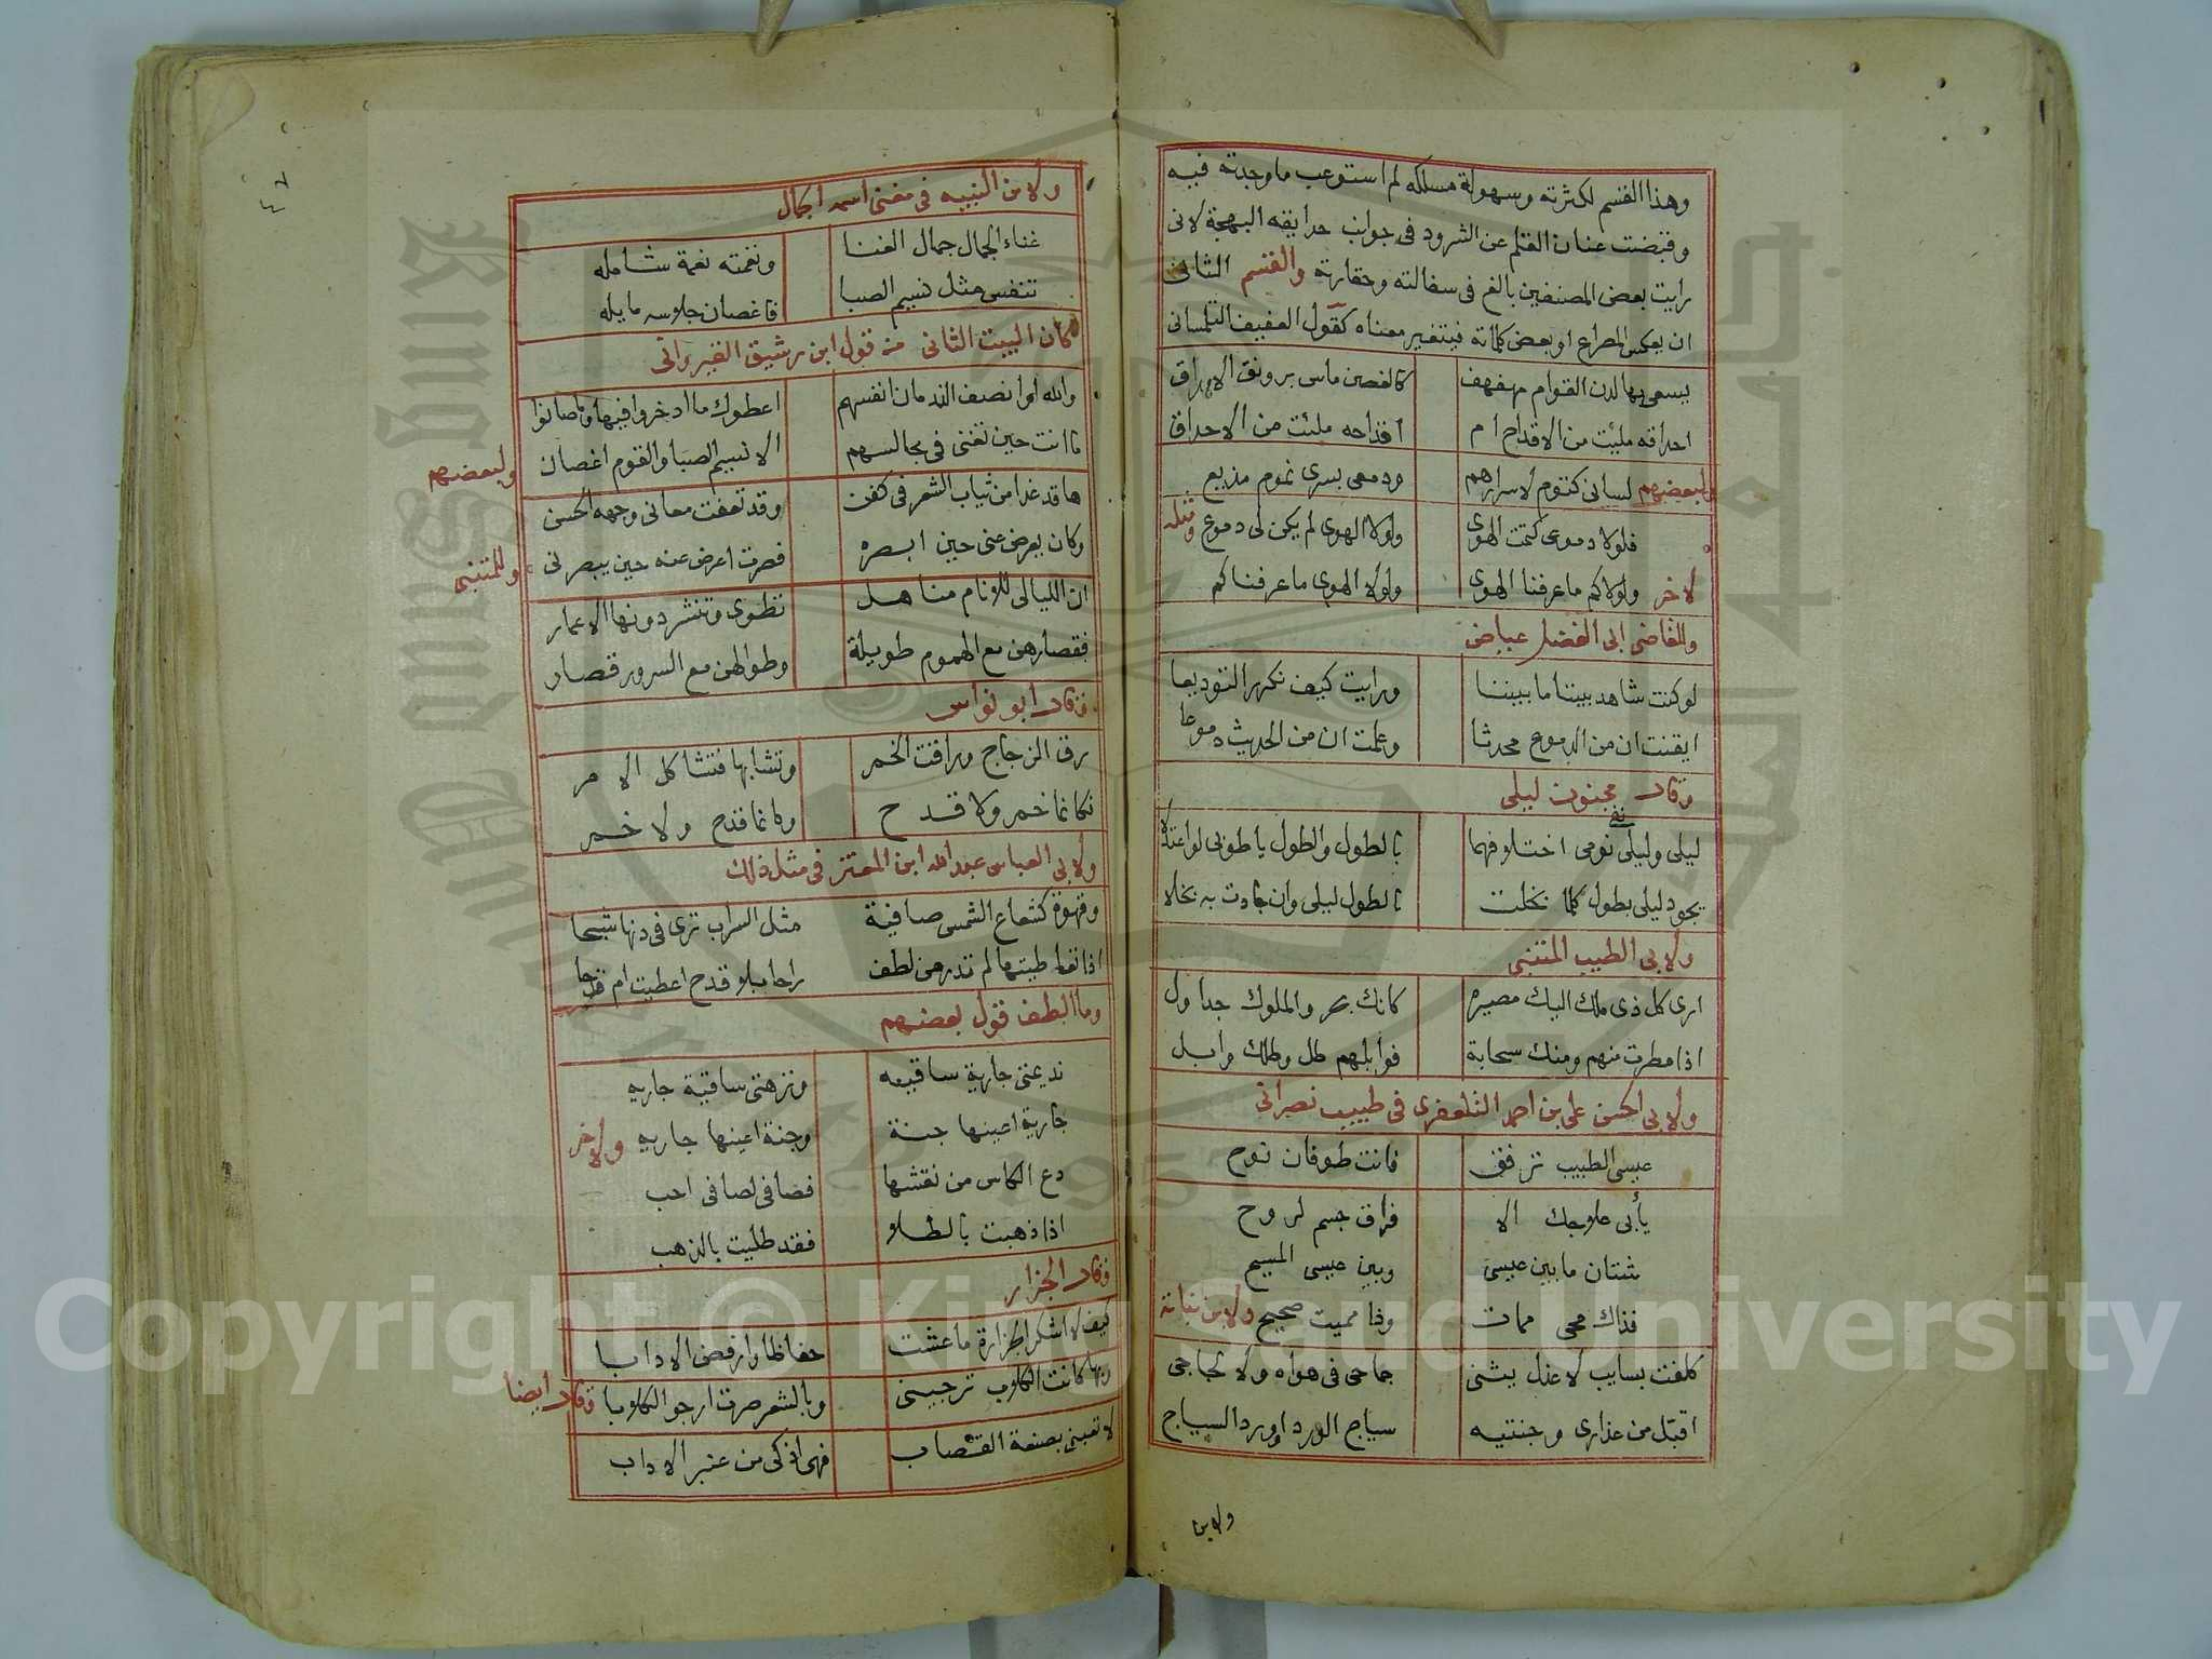 وهذا القسم لكثرته وسهولة مسلكه لم استوعب ما وجدته فيه
وقبضت عنان القلم عن الشرود في جوانب حدايقه البهجة لاني
رايت بعض المصنفين بالغ في سفالته وحقارته والقسم الثاني
ان يعكس المصراع او بعض كلماته فيتغير معناه كقول العفيف التلمساني
يسعى بها لدن القوام مهفهف كالغصن ماس برونق الاوراق
احداقه مليت من الاقداح ام اقداحه ملئت من الاحداق
ولبعضهم لساني كتوم لاسرارهم ودمعي بسري نموم مذيع
فلولا دموعي كتمت الهوى ولولا الهوى لم يكن لي دموع ومثله
لاخر ولولاكم ما عرفنا الهوى ولولا الهوى ما عرفناكم
وللقاضي ابي الفضل عياض
لو كنت شاهد بيننا ما بيننا ورايت كيف نكرر التوديعا
ايقنت ان من الدموع محدثا وعلمت ان من الحديث دموعا
وقال مجنون ليلى
ليلى وليلى نفى نومي اختلافهما بالطول والطول يا طوبى لو اعتدلا
يجود ليلى بطول كلما بخلت بالطول ليلى وان جادت به بخلا
ولابي الطيب المتنبي
ارى كل ذي ملك اليك مصيره كانك بحر والملوك جداول
اذا مطرت منهم ومنك سحابة فوابلهم طل وطلك وابل
ولابي الحسن علي بن احمد التلعفري في طبيب نصراني
عيسى الطبيب ترفق فانت طوفان نوح
يأبى علاجك الا فراق جسم لروح
شتان ما بين عيسى وبين عيسى المسيح
فذاك محيى ممات وذا مميت صحيح ولابن نباته
كلفت بسايب لا عذل يثنى جماحى في هواه ولا لجاجى
اقبل من عذارى وجنتيه سياج الورد او ورد السياج
ولابن
ولابن النبيه في مغنى اسمه الجمال
غناء الجمال جمال الغنا ونغمته نعمة شامله
تنفس مثل نسيم الصبا فاغصان جلاسه مايله
كان البيت الثاني من قول ابن رشيق القيرواني
والله لو انصف الندمان انفسهم اعطوك ما ادخروا فيها وما صانوا
ما انت حين تغنى في مجالسهم الا نسيم الصبا والقوم اغصان ولبعضهم
ها قد غدا من ثياب الشعر في كفن وقد تعفت معاني وجهه الحسن
وكان يعرض عنى حين ابصره فصرت اعرض عنه حين يبصرني وللمتنبي
ان الليالي للانام مناهل تطوى وتنشر دونها الاعمار
فقصارهن مع الهموم طويلة وطوالهن مع السرور قصار
وقال ابو نواس
رق الزجاج وراقت الخمر وتشابها فتشاكل الامر
فكانما خمر ولا قدح وكانما قدح ولا خمر
ولابي العباس عبد الله ابن المعتز في مثل ذلك
وقهوة كشعاع الشمس صافية مثل السراب ترى في دنها شبحا
اذا تعاطيتها لم تدر من لطف راحا بلا قدح اعطيت ام قدحا
وما الطف قول بعضهم
نديمتي جارية ساقيه ونزهتي ساقية جاريه
جارية اعينها جنة وجنة اعينها جاريه ولاخر
دع الكاس من نقشها فصافي لصافي احب
اذا ذهبت بالطلا فقد طليت بالذهب
وقال الجزار
كيف لا اشكر الجزارة ما عشت حفاظا وارفض الادابا
وبها كانت الكلاب ترجينى وبالشعر صرت ارجو الكلابا وقال ايضا
لا تعبنى بصنعة القصاب فهي اذكى من عنبر الاداب
Copyright © King Saud University